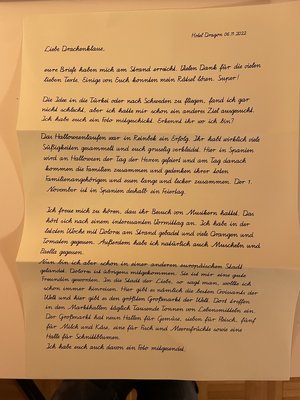 Hotel Dragon 06.11.2022
Liebe Drachenklasse,
eure Briefe haben mich am Strand erreicht. Vielen Dank für die vielen
lieben Texte. Einige von Euch konnten mein Rätsel lösen. Super!
Die Idee in die Türkei oder nach Schweden zu fliegen, fand ich gar
nicht schlecht, aber ich hatte mir schon ein anderes Ziel ausgesucht.
Ich habe euch ein Foto mitgeschickt. Erkennt ihr wo ich bin?
Das Halloweenlaufen war in Reinbek ein Erfolg. Ihr habt wirklich viele
Süßigkeiten gesammelt und euch gruselig verkleidet. Hier in Spanien
wird an Halloween der Tag der Hexen gefeiert und am Tag danach
kommen die Familien zusammen und gedenken ihrer toten
Familienangehörigen und essen lange und lecker zusammen. Der 1.
November ist in Spanien deshalb ein Feiertag.
Ich freue mich zu hören, dass ihr Besuch von Musikern hattet. Das
hört sich nach einem interessanten Vormittag an. Ich habe in der
letzten Woche mit Dolores am Strand gebadet und viele Orangen und
Tomaten gegessen. Außerdem habe ich natürlich auch Muscheln und
Paella gegessen.
Nun bin ich aber schon in einer anderen europäischen Stadt
gelandet. Dolores ist übrigens mitgekommen. Sie ist mir eine gute
Freundin geworden. In die Stadt der Liebe, so sagt man, wollte ich
schon immer kommen. Hier gibt es nämlich die besten Croissants der
Welt und hier gibt es den größten Großmarkt der Welt. Dort treffen
in den Markthallen täglich Tausende Tonnen von Lebensmitteln ein.
Der Großmarkt hat neun Hallen für Gemüse, sieben für Fleisch, fünf
für Milch und Käse, eine für Fisch und Meeresfrüchte sowie eine
Halle für Schnittblumen.
Ich habe euch auch davon ein Foto mitgesendet.